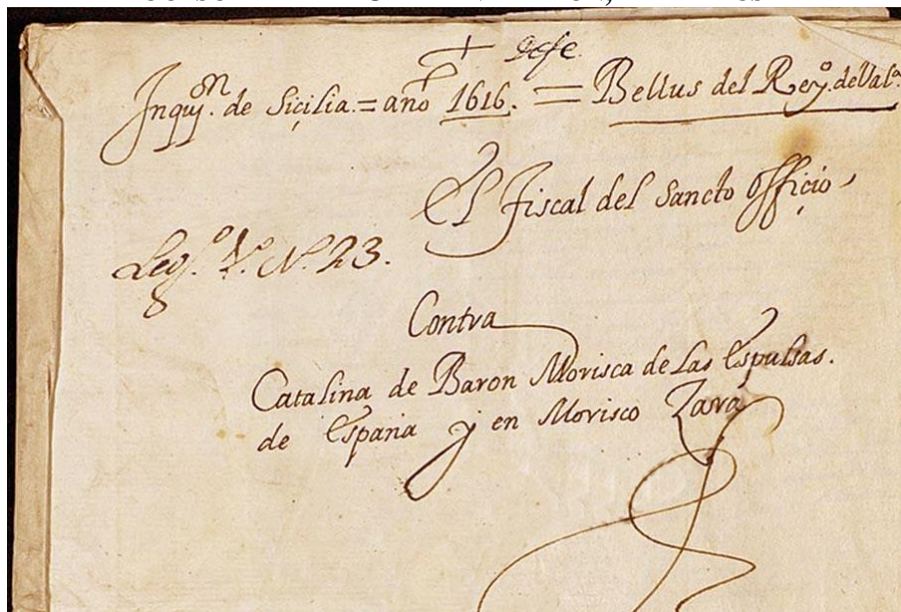 Defe
Inquy.on de Siçilia. = año 1616. = Bellus del Rey.o de Val.a
El Fiscal del Sancto Offiçio
Leg.o V.o N.o 23.
Contra
Catalina de Baron Morisca de las Espulsas.
de España y en Morisco Zara